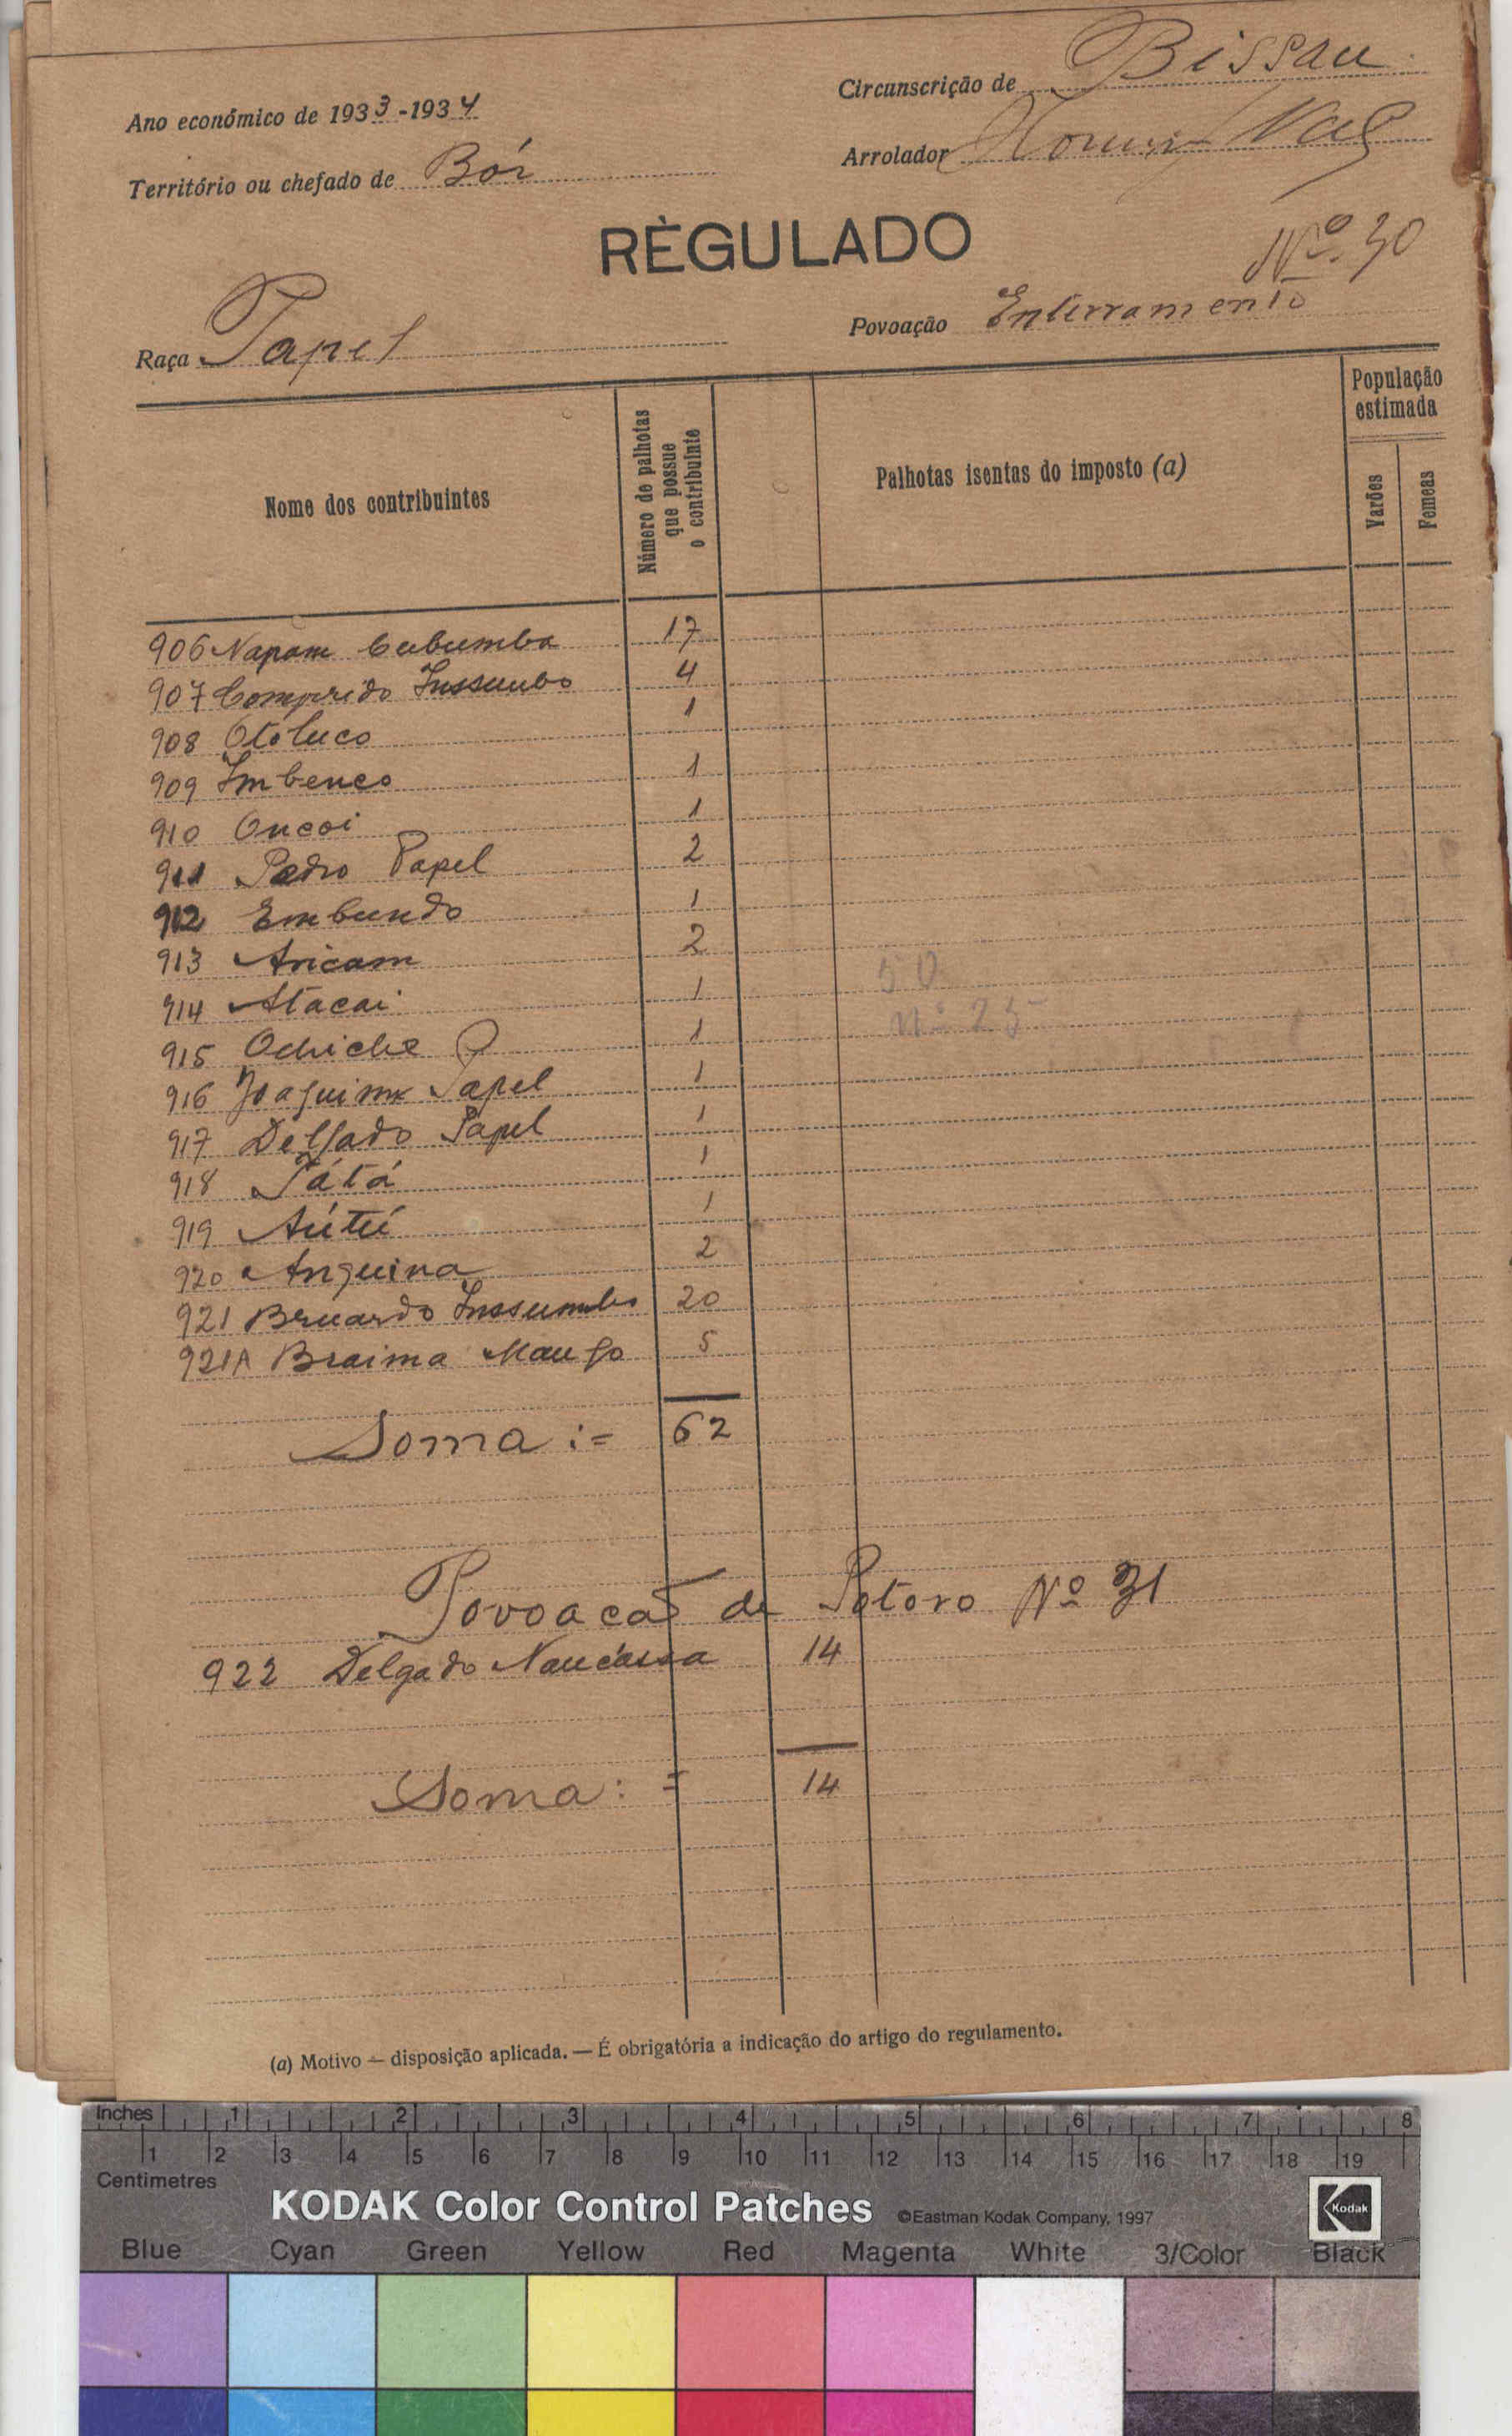 Circunscrição de Bissau
Ano económico de 1933-1934
Arrolador
Território ou chefado de Bór
RÈGULADO
Nº 30
Raça Papel
Povoação Enterramento
Nome dos contribuintes
Número de palhotas que possue o contribuinte
Palhotas isentas do imposto (a)
População estimada
Varões
Femeas
906 Napam Cubumba 17
907 Comprido Inssumbo 4
908 Otoluco 1
909 Imbenco 1
910 Oncoi 1
911 Pedro Papel 2
912 Embundo 1
913 Aricam 2
914 Atacai 1
915 Ochiche 1
916 Joaquim Papel 1
917 Delgado Papel 1
918 Tátá 1
919 Aútú 1
920 Anguina 2
921 Bruardo Inssumbo 20
921A Braima Mango 5
50
Nº 25
Soma := 62
Povoacão de Potoro Nº 31
922 Delgado Naucássa 14
Soma := 14
(a) Motivo — disposição aplicada. — É obrigatória a indicação do artigo do regulamento.
Inches 1 2 3 4 5 6 7 8
1 2 3 4 5 6 7 8 9 10 11 12 13 14 15 16 17 18 19
Centimetres
KODAK Color Control Patches ©Eastman Kodak Company, 1997 Kodak
Blue Cyan Green Yellow Red Magenta White 3/Color Black